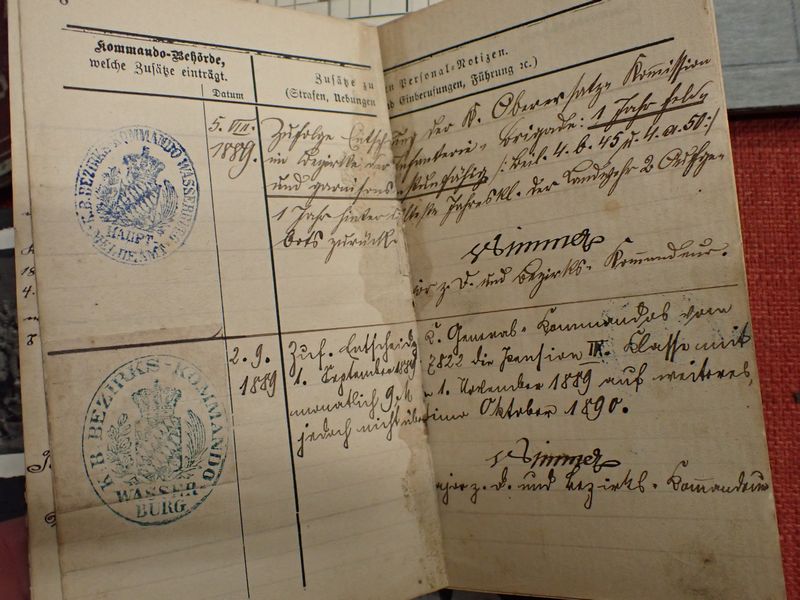 Kommando-Behörde,
welche Zusätze einträgt.
Datum
Zusätze zu den Personal-Notizen.
(Strafen, Uebungen und Einberufungen, Führung ꝛc.)
K. B. BEZIRKS KOMMANDO WASSERBURG
HAUPT
MELDEAMT
5. VIII.
1889.
Zufolge Entscheidung der K. Ober Ersatz-Kommission
im Bezirke der Infanterie-Brigade: 1 Jahr feld-
und garnisons- /: Beil. 4. b. 45 u. 4. a. 50:/
1 Jahr hinter älteste Jahreskl. der Landwehr 2 Aufge-
bots zurück.
Major z. D. und Bezirks-Kommandeur.
K. B. BEZIRKS-KOMMANDO
WASSER
BURG
2. 9.
1889
Zuf. Entscheidg K. General-Kommandos vom
1. September 1889 7822 die Pension III. Klasse mit
monatlich 9 M 1. November 1889 auf weiteres,
jedoch nicht über ultimo Oktober 1890.
Major z. D. und Bezirks-Kommandeur